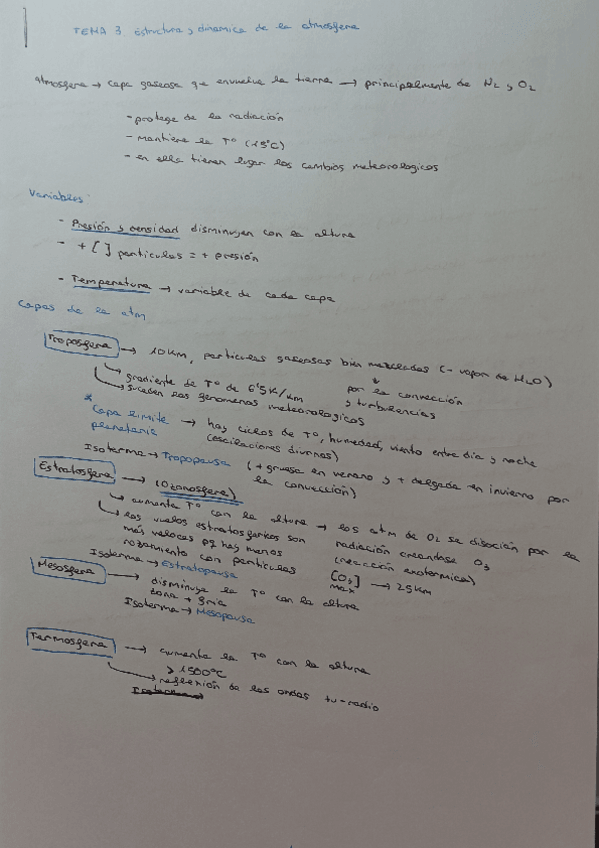 TEMA 3 Estructura y dinamica de la atmosfera
atmosfera → capa gaseosa que envuelve la tierra → principalmente de N2 y O2
- protege de la radiación
- mantiene la Tº (15ºC)
- en ella tienen lugar los cambios meteorologicos
Variables:
- Presión y densidad disminuyen con la altura
- + [ ] particulas = + presión
- Temperatura → variable de cada capa
Capas de la atm
Troposfera → 10km, particulas gaseosas bien mezcladas (- vapor de H2O)
por la convección
y turbulencias
gradiente de Tº de 6'5K/km
suceden los fenomenos meteorologicos
* Capa limite planetaria → hay ciclos de Tº, humedad, viento entre dia y noche
(oscilaciones diurnas)
Isoterma → Tropopausa (+ gruesa en verano y + delgada en invierno por
la convección)
Estratosfera → (Ozonosfera)
aumenta Tº con la altura → los atm de O2 se disocian por la
radiación creandose O3
(reacción exotermica)
los vuelos estratosfericos son
más veloces pq hay menos
rozamiento con particulas
[O3] max → 25km
Isoterma → Estratopausa
Mesosfera → disminuye la Tº con la altura
zona + fria
Isoterma → Mesopausa
Termosfera → aumenta la Tº con la altura
> 1500ºC
reflexión de las ondas tv-radio
Isoterma →